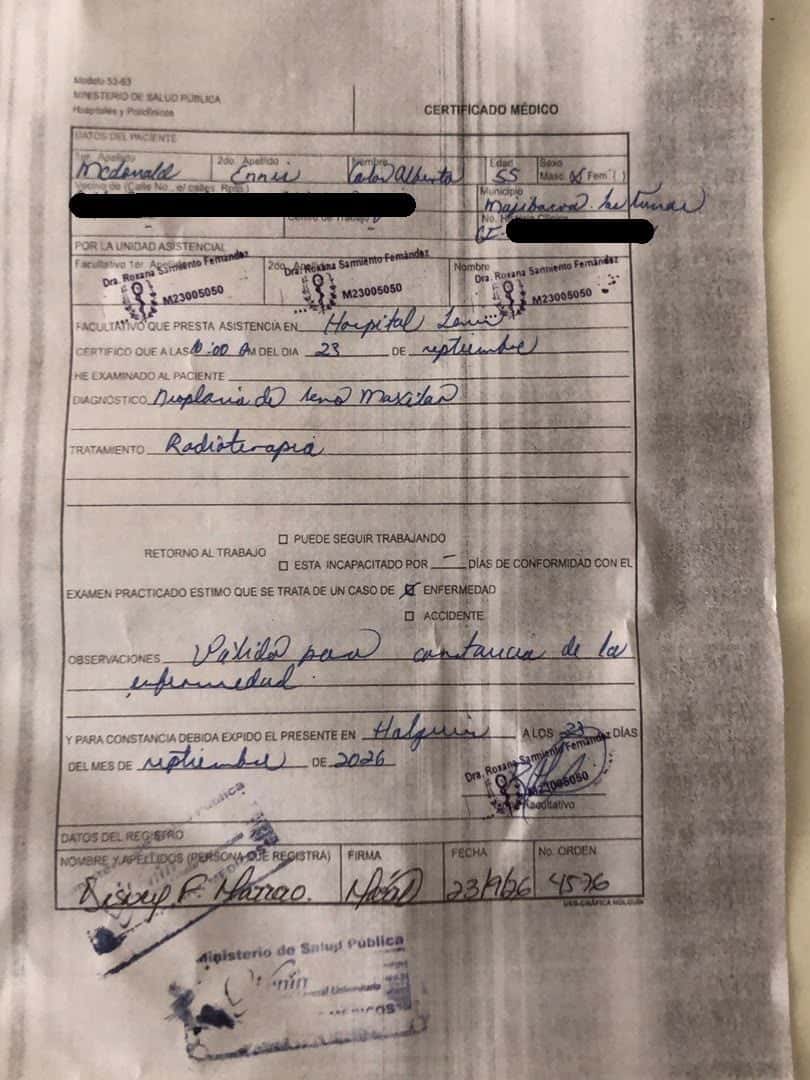 Modelo 53-63
MINISTERIO DE SALUD PÚBLICA
Hospitales y Policlínicos
CERTIFICADO MÉDICO
DATOS DEL PACIENTE
1er. Apellido 2do. Apellido Nombre Edad Sexo
Mcdonald Ennis Carlos Alberto 55 Masc. (X) Fem ( )
Vecino de (Calle No., e/ calles, Rpto.) Municipio
Majibacoa. Las Tunas
Centro de Trabajo No. Historia Clínica
CI-
POR LA UNIDAD ASISTENCIAL
Facultativo 1er. Apellido 2do. Apellido Nombre
Dra. Roxana Sarmiento Fernández Dra. Roxana Sarmiento Fernández Dra. Roxana Sarmiento Fernández
M23005050 M23005050 M23005050
FACULTATIVO QUE PRESTA ASISTENCIA EN Hospital Lenin
CERTIFICO QUE A LAS 10:00 AM DEL DIA 23 DE septiembre
HE EXAMINADO AL PACIENTE
DIAGNÓSTICO Neoplasia de seno Maxilar
TRATAMIENTO Radioterapia
RETORNO AL TRABAJO
□ PUEDE SEGUIR TRABAJANDO
□ ESTA INCAPACITADO POR — DÍAS DE CONFORMIDAD CON EL
EXAMEN PRACTICADO ESTIMO QUE SE TRATA DE UN CASO DE ☒ ENFERMEDAD
□ ACCIDENTE
OBSERVACIONES Válido para constancia de la
enfermedad.
Y PARA CONSTANCIA DEBIDA EXPIDO EL PRESENTE EN Holguín A LOS 23 DÍAS
DEL MES DE septiembre DE 2026
Dra. Roxana Sarmiento Fernández
M23005050
Facultativo
DATOS DEL REGISTRO
NOMBRE Y APELLIDOS (PERSONA QUE REGISTRA) FIRMA FECHA No. ORDEN
23/9/26 4576
UEB-GRÁFICA HOLGUÍN
Ministerio de Salud Pública